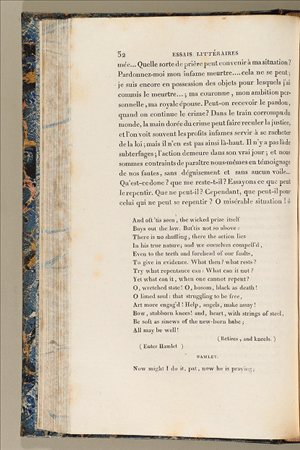 52 ESSAIS LITTÉRAIRES
mée... Quelle sorte de prière peut convenir à ma situation?
Pardonnez-moi mon infame meurtre.... cela ne se peut;
je suis encore en possession des objets pour lesquels j'ai
commis le meurtre...; ma couronne, mon ambition per-
sonnelle, ma royale épouse. Peut-on recevoir le pardon,
quand on continue le crime? Dans le train corrompu du
monde, la main dorée du crime peut faire reculer la justice,
et l'on voit souvent les profits infames servir à se racheter
de la loi; mais il n'en est pas ainsi là-haut. Il n'y a pas là de
subterfuges; l'action demeure dans son vrai jour; et nous
sommes contraints de paraître nous-mêmes en témoignage
de nos fautes, sans déguisement et sans aucun voile...
Qu'est-ce donc? que me reste-t-il? Essayons ce que peut
le repentir. Que ne peut-il? Cependant, que peut-il pour
celui qui ne peut se repentir? O misérable situation! ô
And oft 'tis seen, the wicked prize itself
Buys out the law. But 'tis not so above:
There is no shuffling, there the action lies
In his true nature; and we ourselves compell'd,
Even to the teeth and forehead of our faults,
To give in evidence. What then? what rests?
Try what repentance can: What can it not?
Yet what can it, when one cannot repent?
O, wretched state! O, bosom, black as death!
O limed soul; that struggling to be free,
Art more engag'd! Help, angels, make assay!
Bow, stubborn knees! and, heart, with strings of steel,
Be soft as sinews of the new-born babe;
All may be well!
(Retires, and kneels.)
(Enter Hamlet)
HAMLET.
Now might I do it, pat, now he is praying;